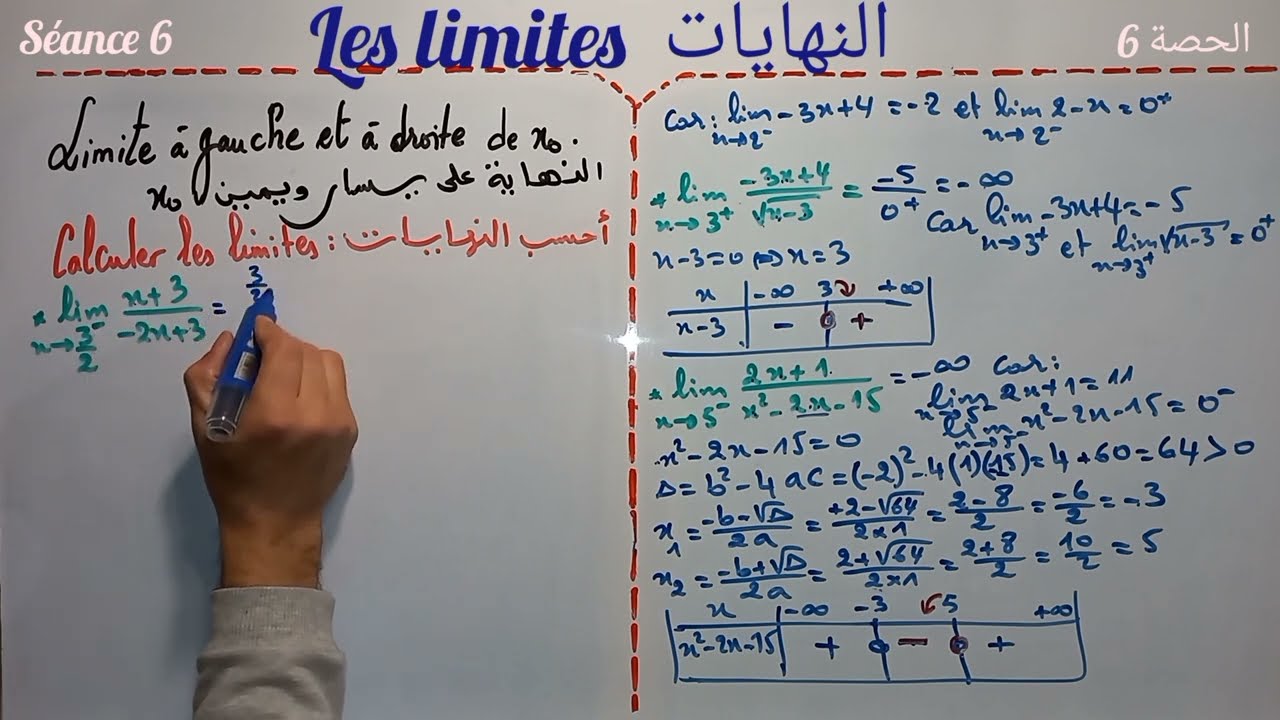 Séance 6
Les limites النهايات
الحصة 6
Limite à gauche et à droite de x₀.
النهاية على يسار ويمين x₀
Calculer les limites : أحسب النهايات :
* lim x→3/2⁻ (x+3)/(-2x+3) = 3/2
Car: lim x→2⁻ -3x+4 = -2 et lim x→2⁻ 2-x = 0⁺
* lim x→3⁺ (-3x+4)/√(x-3) = -5/0⁺ = -∞
Car lim x→3⁺ -3x+4 = -5
et lim x→3⁺ √(x-3) = 0⁺
x-3=0 ⇔ x=3
x -∞ 3 +∞
x-3 - 0 +
* lim x→5⁻ (2x+1)/(x²-2x-15) = -∞ car:
lim x→5⁻ 2x+1 = 11
lim x→5⁻ x²-2x-15 = 0⁻
x²-2x-15=0
Δ = b²-4ac = (-2)²-4(1)(-15) = 4+60 = 64 > 0
x₁ = (-b-√Δ)/2a = (+2-√64)/(2×1) = (2-8)/2 = -6/2 = -3
x₂ = (-b+√Δ)/2a = (2+√64)/(2×1) = (2+8)/2 = 10/2 = 5
x -∞ -3 5 +∞
x²-2x-15 + 0 - 0 +